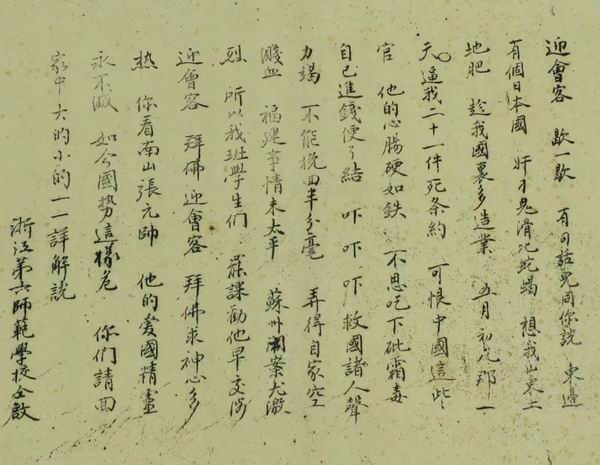 迎會客 歇一歇 有句話兒同你說 東邊
有個日本國 奸刁鬼滑比蛇蝎 想我山東土
地肥 趁我國裏多造業 五月初九那一
天 逼我二十一件死条約 可恨中國這些
官 他的心腸硬如鉄 不思吃下砒霜毒
自己進錢便了結 吓 吓 吓 救國諸人聲
力竭 不能挽回半分毫 弄得自家空
濺血 福建事情未太平 蘇州鬧案尤激
烈 所以我班學生們 罷課勸他早交涉
迎會客 拜佛 迎會客 拜佛求神心多
热 你看南山張元帥 他的爱國精靈
永不滅 如今國勢這樣危 你們請回
家中 大的小的一一詳解説
浙江第六師範學校仝啟